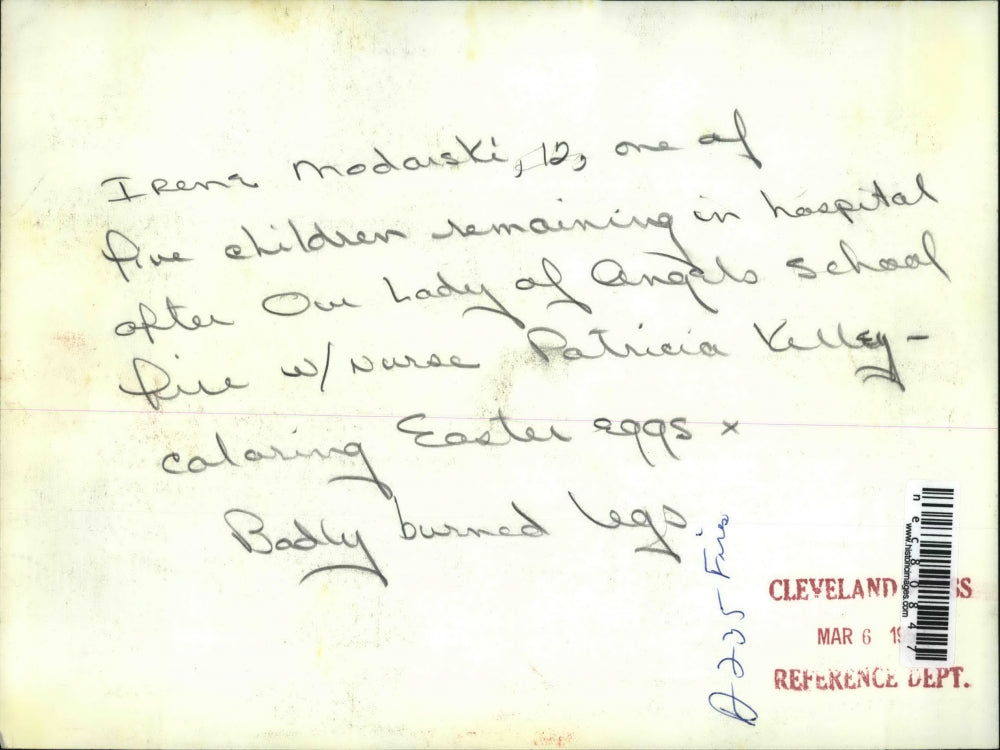 Irene Modarski, 12, one of
five children remaining in hospital
after Our Lady of Angels School
fire w/ nurse Patricia Kelley -
coloring Easter eggs x
Badly burned legs
D-235 Fires
CLEVELAND SS
MAR 6 19
REFERENCE DEPT.
www.historicimages.com
nec80847